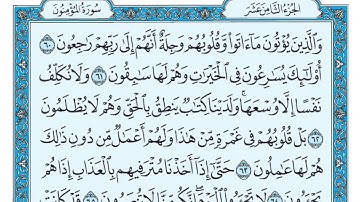 سُورَةُ المُؤْمِنُونَ الجُزْءُ الثَّامِنَ عَشَرَ
وَالَّذِينَ يُؤْتُونَ مَا ءَاتَوا وَّقُلُوبُهُمْ وَجِلَةٌ أَنَّهُمْ إِلَىٰ رَبِّهِمْ رَاجِعُونَ ٦٠
أُوْلَٰئِكَ يُسَارِعُونَ فِي الْخَيْرَاتِ وَهُمْ لَهَا سَابِقُونَ ٦١ وَلَا نُكَلِّفُ
نَفْسًا إِلَّا وُسْعَهَا وَلَدَيْنَا كِتَابٌ يَنطِقُ بِالْحَقِّ وَهُمْ لَا يُظْلَمُونَ
٦٢ بَلْ قُلُوبُهُمْ فِي غَمْرَةٍ مِّنْ هَٰذَا وَلَهُمْ أَعْمَالٌ مِّن دُونِ ذَٰلِكَ
هُمْ لَهَا عَامِلُونَ ٦٣ حَتَّىٰ إِذَا أَخَذْنَا مُتْرَفِيهِم بِالْعَذَابِ إِذَا هُمْ